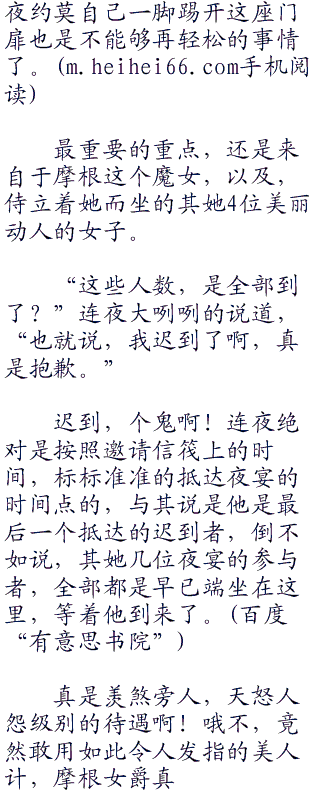 夜约莫自己一脚踢开这座门
扉也是不能够再轻松的事情
了。(m.heihei66.com手机阅
读)
最重要的重点，还是来
自于摩根这个魔女，以及，
侍立着她而坐的其她4位美丽
动人的女子。
“这些人数，是全部到
了？”连夜大咧咧的说道，
“也就说，我迟到了啊，真
是抱歉。”
迟到，个鬼啊！连夜绝
对是按照邀请信筏上的时
间，标标准准的抵达夜宴的
时间点的，与其说是他是最
后一个抵达的迟到者，倒不
如说，其她几位夜宴的参与
者，全部都是早已端坐在这
里，等着他到来了。(百度
“有意思书院”)
真是羡煞旁人，天怒人
怨级别的待遇啊！哦不，竟
然敢用如此令人发指的美人
计，摩根女爵真